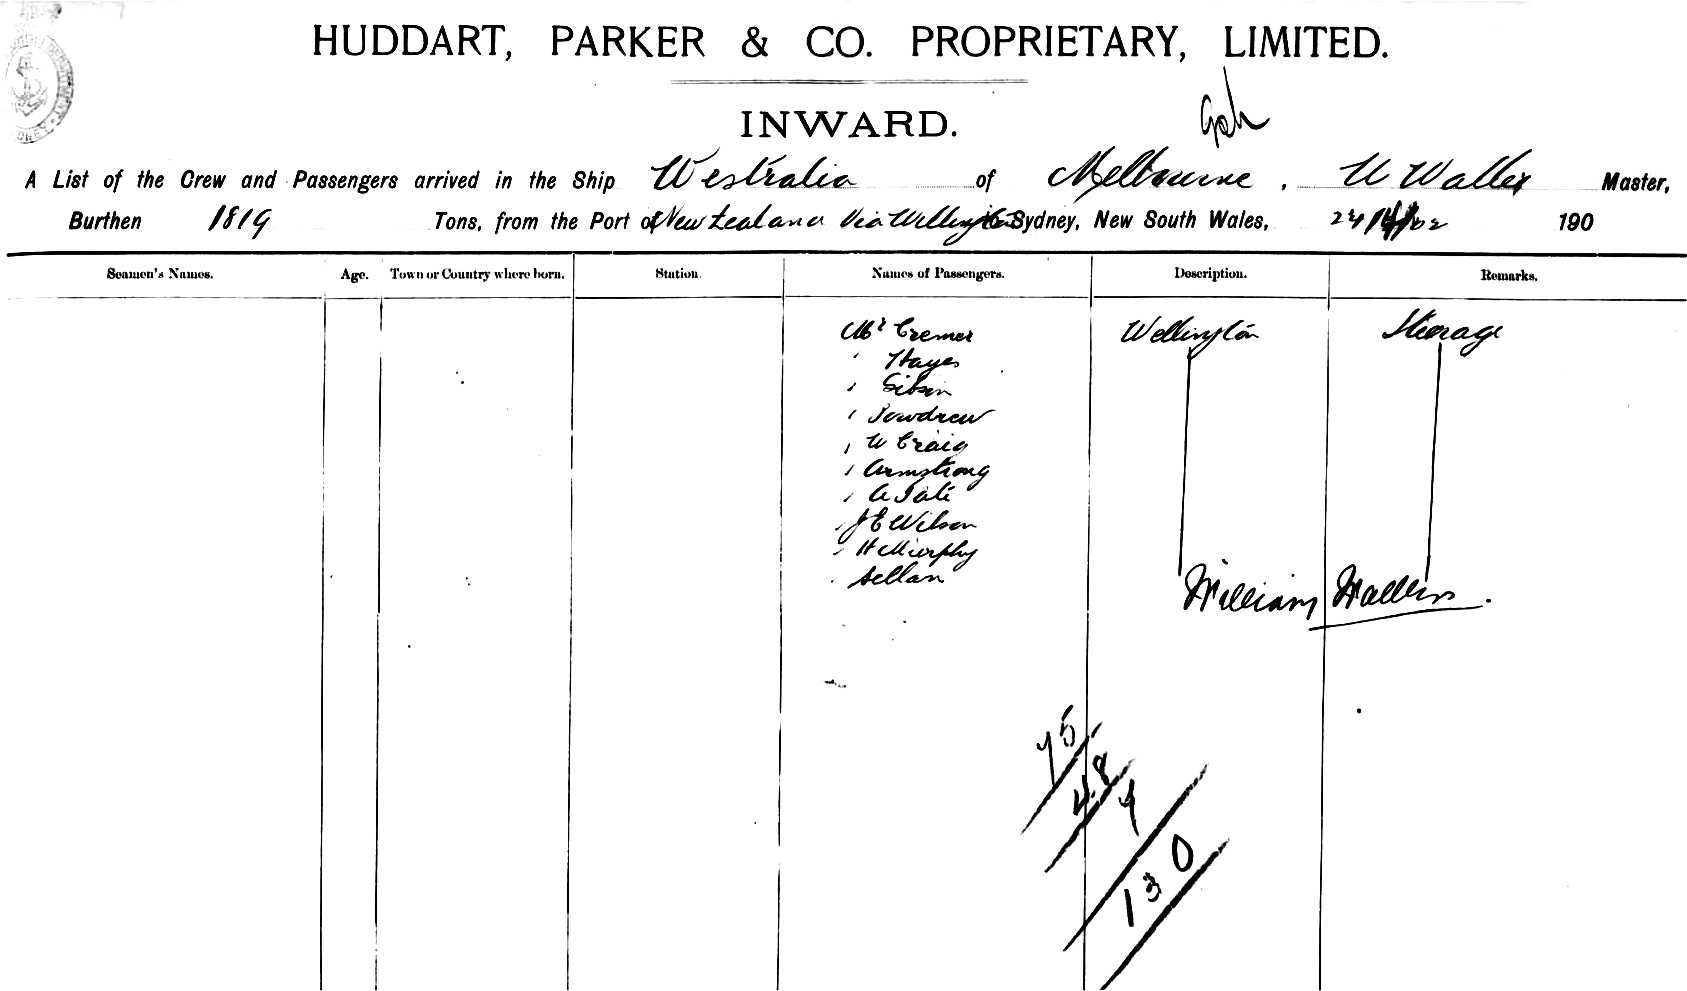 HUDDART, PARKER & CO. PROPRIETARY, LIMITED.
INWARD.
A List of the Crew and Passengers arrived in the Ship Westralia of Melbourne, W Waller Master,
Burthen 1819 Tons, from the Port of New Zealand Via Wellington to Sydney, New South Wales, 190
Seamen's Names. Age. Town or Country where born. Station. Names of Passengers. Description. Remarks.
Mr Cremer Wellington Steerage
" Hayes
" Gibson
" Powdrew
" W Craig
" Armstrong
" A Tate
" J E Wilson
" H Murphy
" Sellan
William Waller.
75
48
7
130